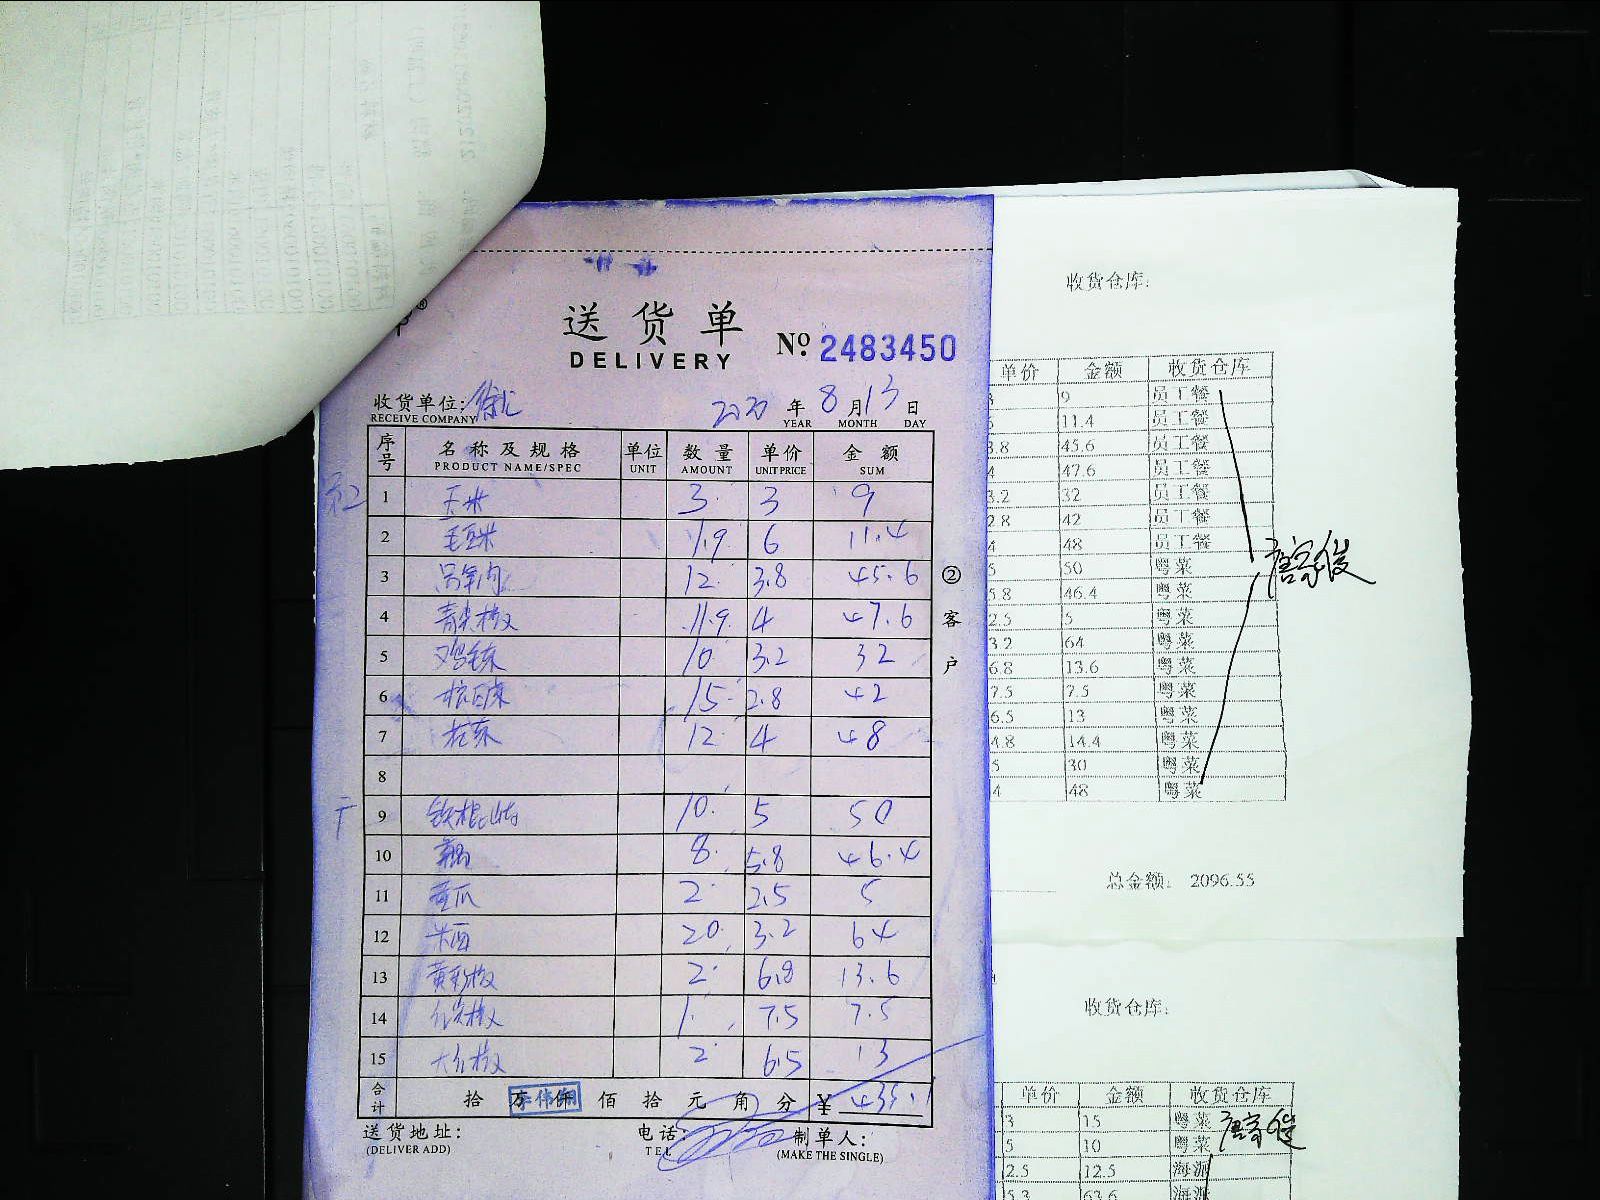 送货单
DELIVERY
No. 2483450
收货单位:
RECEIVE COMPANY
2020 年 8 月 13 日
YEAR MONTH DAY
序号 名称及规格 单位 数量 单价 金额
PRODUCT NAME/SPEC UNIT AMOUNT UNIT PRICE SUM
1 玉米 3 3 9
2 毛豆米 1.9 6 11.4
3 12 3.8 45.6
4 青尖椒 11.9 4 47.6
5 鸡毛菜 10 3.2 32
6 杭白菜 15 2.8 42
7 12 4 48
8
9 铁棍山药 10 5 50
10 8 5.8 46.4
11 黄瓜 2 2.5 5
12 西 20 3.2 64
13 黄彩椒 2 6.8 13.6
14 椒 1 7.5 7.5
15 大红椒 2 6.5 13
合计 拾 万 仟 佰 拾 元 角 分 ¥ 435.1
李伟
送货地址: 电话: 制单人:
(DELIVER ADD) TEL (MAKE THE SINGLE)
②客户
收货仓库:
单价 金额 收货仓库
9 员工餐
11.4 员工餐
3.8 45.6 员工餐
4 47.6 员工餐
3.2 32 员工餐
2.8 42 员工餐
4 48 员工餐
5 50 粤菜
5.8 46.4 粤菜
2.5 5 粤菜
3.2 64 粤菜
6.8 13.6 粤菜
7.5 7.5 粤菜
6.5 13 粤菜
4.8 14.4 粤菜
5 30 粤菜
4 48 粤菜
唐家俊
总金额: 2096.55
收货仓库:
单价 金额 收货仓库
3 15 粤菜
5 10 粤菜
2.5 12.5 海派
5.3 63.6 海派